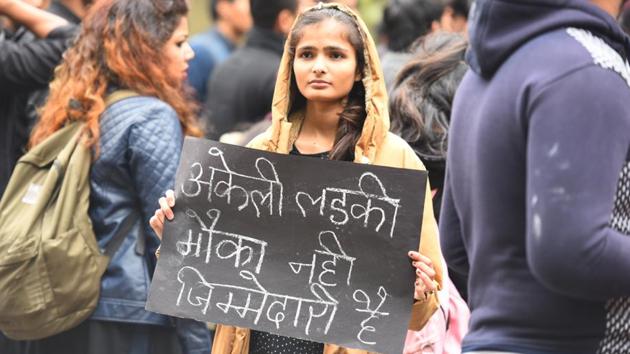 अकेली लड़की
मौका नही
जिम्मेदारी है